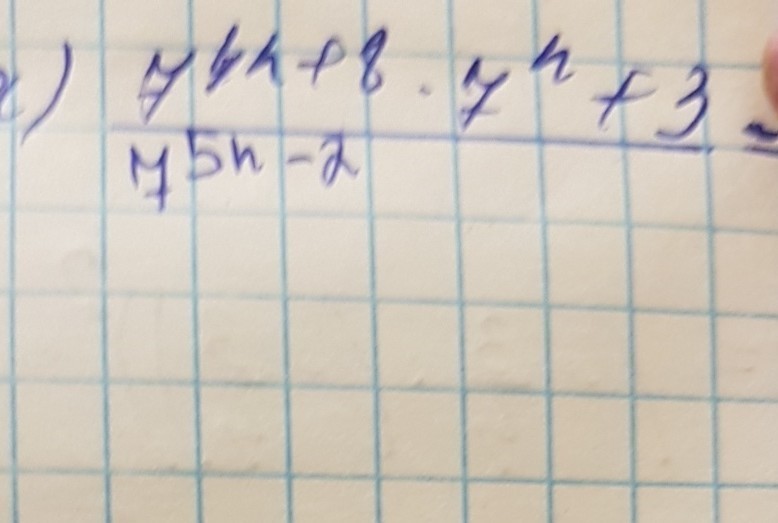 ) 7^{4n+8} · 7^n + 3 =
7^{5n-2}